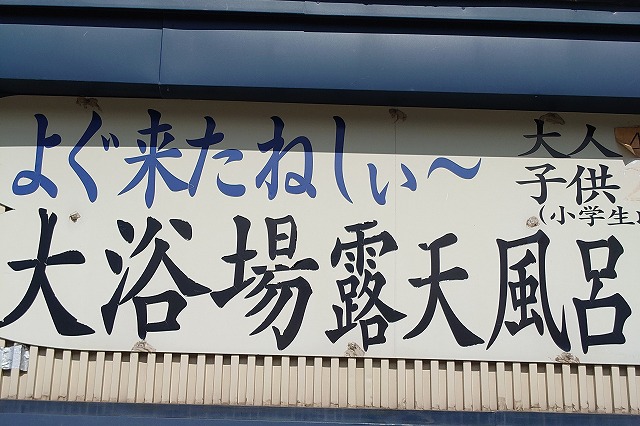 よぐ来たねしぃ〜
大人
子供
(小学生
大浴場露天風呂